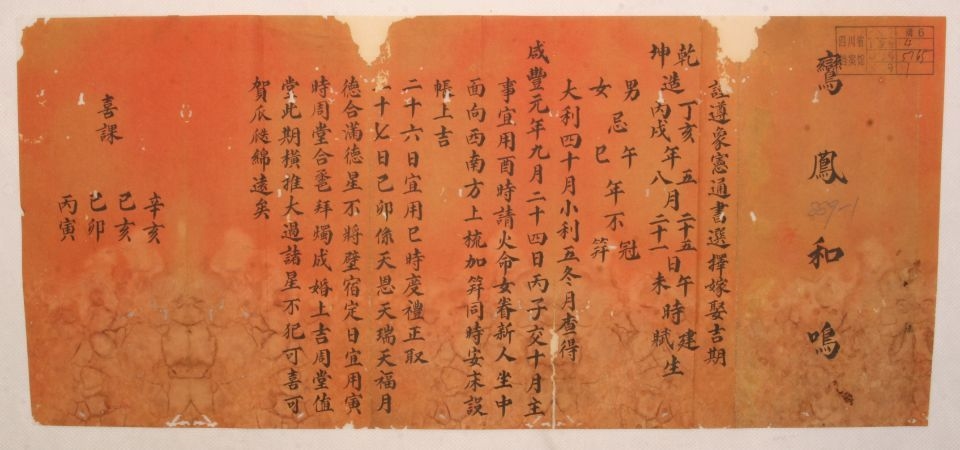 鸞鳳和鳴
遵象憲通書選擇嫁娶吉期
乾造丁亥年五月二十五日午時建生
坤 丙戌 八 二十一 未 賦
男忌午年不冠
女 巳 笄
大利四十月小利五冬月查得
咸豐元年九月二十四日丙子交十月主
事宜用酉時請火命女眷新人坐中
面向西南方上梳加笄同時安床設
帳上吉
二十六日宜用巳時慶禮正取
二十七日己卯係天恩天瑞天福月
德合滿德星不將壁宿定日宜用寅
時周堂合卺拜燭成婚上吉周堂值
堂此期橫推大過諸星不犯可喜可
賀瓜瓞綿遠矣
喜課
辛亥
己亥
己卯
丙寅
四川省
档案馆
5765
889-1